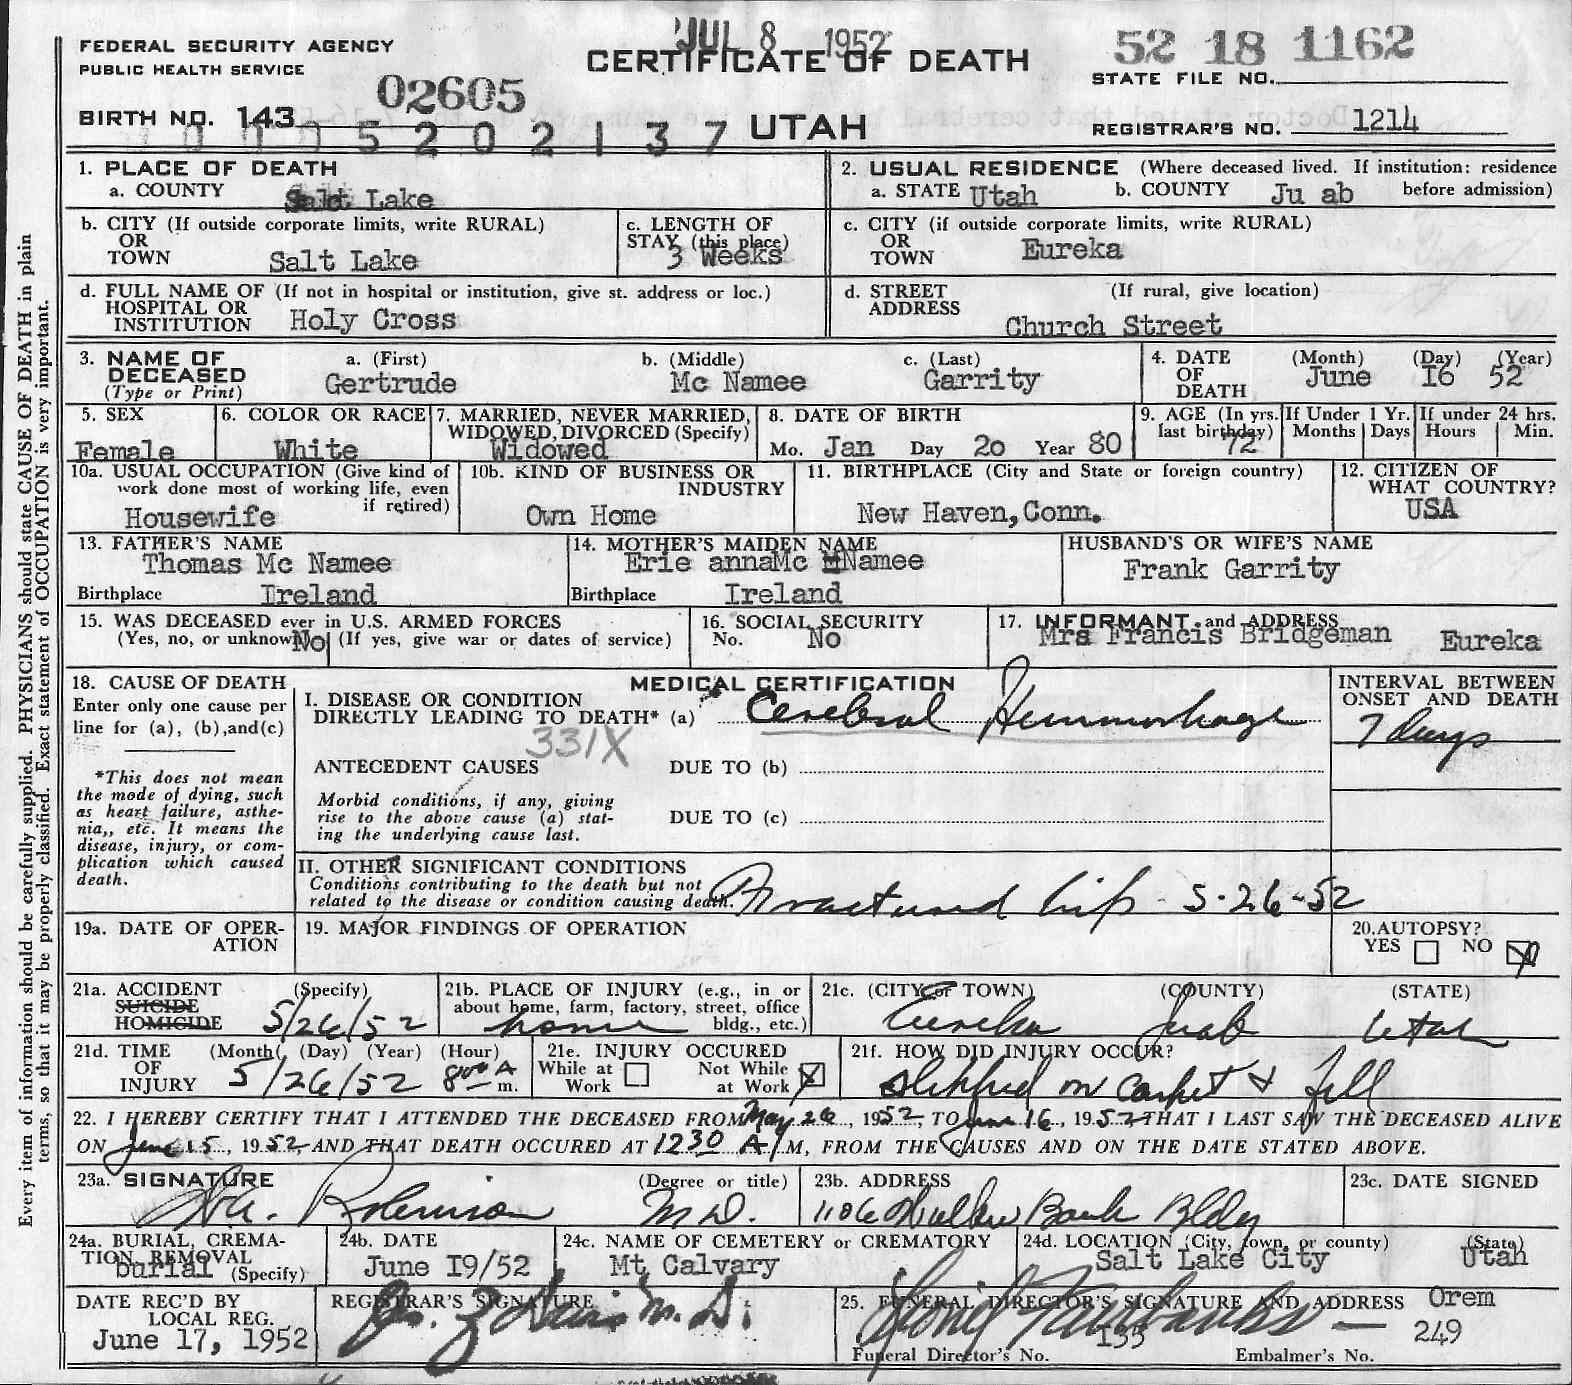 JUL 8 1952
FEDERAL SECURITY AGENCY
PUBLIC HEALTH SERVICE
CERTIFICATE OF DEATH
52 18 1162
STATE FILE NO.
02605
BIRTH NO. 143
5 2 0 2 1 3 7
UTAH
REGISTRAR'S NO. 1214
1. PLACE OF DEATH
a. COUNTY Salt Lake
2. USUAL RESIDENCE (Where deceased lived. If institution: residence before admission)
a. STATE Utah b. COUNTY Ju ab
b. CITY (If outside corporate limits, write RURAL)
OR
TOWN Salt Lake
c. LENGTH OF
STAY (this place)
3 Weeks
c. CITY (if outside corporate limits, write RURAL)
OR
TOWN Eureka
d. FULL NAME OF (If not in hospital or institution, give st. address or loc.)
HOSPITAL OR
INSTITUTION Holy Cross
d. STREET (If rural, give location)
ADDRESS
Church Street
3. NAME OF
DECEASED
(Type or Print)
a. (First) Gertrude
b. (Middle) Mc Namee
c. (Last) Garrity
4. DATE
OF
DEATH
(Month) (Day) (Year)
June I6 52
5. SEX
Female
6. COLOR OR RACE
White
7. MARRIED, NEVER MARRIED,
WIDOWED, DIVORCED (Specify)
Widowed
8. DATE OF BIRTH
Mo. Jan Day 20 Year 80
9. AGE (In yrs.
last birthday)
72
If Under 1 Yr.
Months Days
If under 24 hrs.
Hours Min.
10a. USUAL OCCUPATION (Give kind of
work done most of working life, even
if retired)
Housewife
10b. KIND OF BUSINESS OR
INDUSTRY
Own Home
11. BIRTHPLACE (City and State or foreign country)
New Haven, Conn.
12. CITIZEN OF
WHAT COUNTRY?
USA
13. FATHER'S NAME
Thomas Mc Namee
Birthplace Ireland
14. MOTHER'S MAIDEN NAME
Erie annaMc Namee
Birthplace Ireland
HUSBAND'S OR WIFE'S NAME
Frank Garrity
15. WAS DECEASED ever in U.S. ARMED FORCES
(Yes, no, or unknown) No (If yes, give war or dates of service)
16. SOCIAL SECURITY
No. No
17. INFORMANT and ADDRESS
Mrs Francis Bridgeman Eureka
18. CAUSE OF DEATH
Enter only one cause per
line for (a), (b), and (c)
*This does not mean
the mode of dying, such
as heart failure, asthe-
nia,, etc. It means the
disease, injury, or com-
plication which caused
death.
MEDICAL CERTIFICATION
I. DISEASE OR CONDITION
DIRECTLY LEADING TO DEATH* (a) Cerebral Hemmorhage
331X
INTERVAL BETWEEN
ONSET AND DEATH
7 days
ANTECEDENT CAUSES DUE TO (b)
Morbid conditions, if any, giving
rise to the above cause (a) stat-
ing the underlying cause last.
DUE TO (c)
II. OTHER SIGNIFICANT CONDITIONS
Conditions contributing to the death but not
related to the disease or condition causing death.
Fractured hip - 5-26-52
19a. DATE OF OPER-
ATION
19. MAJOR FINDINGS OF OPERATION
20. AUTOPSY?
YES NO X
21a. ACCIDENT (Specify)
SUICIDE
HOMICIDE 5/26/52
21b. PLACE OF INJURY (e.g., in or
about home, farm, factory, street, office
bldg., etc.)
home
21c. (CITY or TOWN) (COUNTY) (STATE)
Eureka Juab Utah
21d. TIME
OF
INJURY
(Month) (Day) (Year) (Hour)
5/26/52 8:00 A m.
21e. INJURY OCCURED
While at
Work
Not While
at Work X
21f. HOW DID INJURY OCCUR?
Slipped on carpet & fell
22. I HEREBY CERTIFY THAT I ATTENDED THE DECEASED FROM May 26, 1952, TO June 16, 1952 THAT I LAST SAW THE DECEASED ALIVE
ON June 15, 1952, AND THAT DEATH OCCURED AT 12 30 A M, FROM THE CAUSES AND ON THE DATE STATED ABOVE.
23a. SIGNATURE (Degree or title)
Robinson M.D.
23b. ADDRESS
1106 Walker Bank Bldg
23c. DATE SIGNED
24a. BURIAL, CREMA-
TION, REMOVAL
(Specify)
burial
24b. DATE
June I9/52
24c. NAME OF CEMETERY or CREMATORY
Mt Calvary
24d. LOCATION (City, town, or county) (State)
Salt Lake City Utah
DATE REC'D BY
LOCAL REG.
June 17, 1952
REGISTRAR'S SIGNATURE
M. D.
25. FUNERAL DIRECTOR'S SIGNATURE AND ADDRESS Orem
Fairbanks
I33 249
Funeral Director's No. Embalmer's No.
Every item of information should be carefully supplied. PHYSICIANS should state CAUSE OF DEATH in plain
terms, so that it may be properly classified. Exact statement of OCCUPATION is very important.